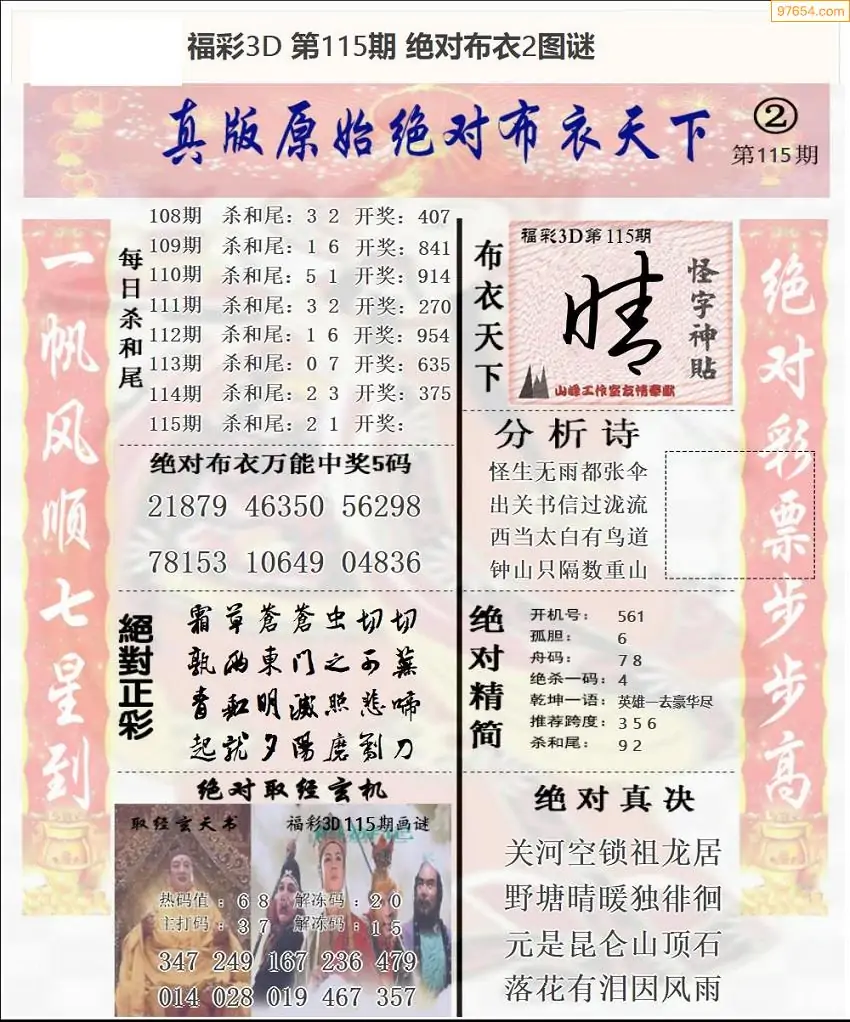 97654.com
福彩3D 第115期 绝对布衣2图谜
真版原始绝对布衣天下
②
第115期
一帆风顺七星到
每日杀和尾
108期 杀和尾：3 2 开奖：407
109期 杀和尾：1 6 开奖：841
110期 杀和尾：5 1 开奖：914
111期 杀和尾：3 2 开奖：270
112期 杀和尾：1 6 开奖：954
113期 杀和尾：0 7 开奖：635
114期 杀和尾：2 3 开奖：375
115期 杀和尾：2 1 开奖：
绝对布衣万能中奖5码
21879 46350 56298
78153 10649 04836
絕對正彩
霜草蒼蒼虫切切
孰两東門之不蕪
青红明滅照悲啼
起就夕陽磨劉刀
绝对取经玄机
取经玄天书
福彩3D115期画谜
热码值：6 8 解冻码：2 0
主打码：3 7 解冻码：1 5
347 249 167 236 479
014 028 019 467 357
布衣天下
福彩3D第115期
晴
怪字神貼
山峰工作室友情奉献
分析诗
怪生无雨都张伞
出关书信过泷流
西当太白有鸟道
钟山只隔数重山
绝对精简
开机号： 561
孤胆： 6
舟码： 7 8
绝杀一码：4
乾坤一语：英雄一去豪华尽
推荐跨度：3 5 6
杀和尾： 9 2
绝对真决
关河空锁祖龙居
野塘晴暖独徘徊
元是昆仑山顶石
落花有泪因风雨
绝对彩票步步高